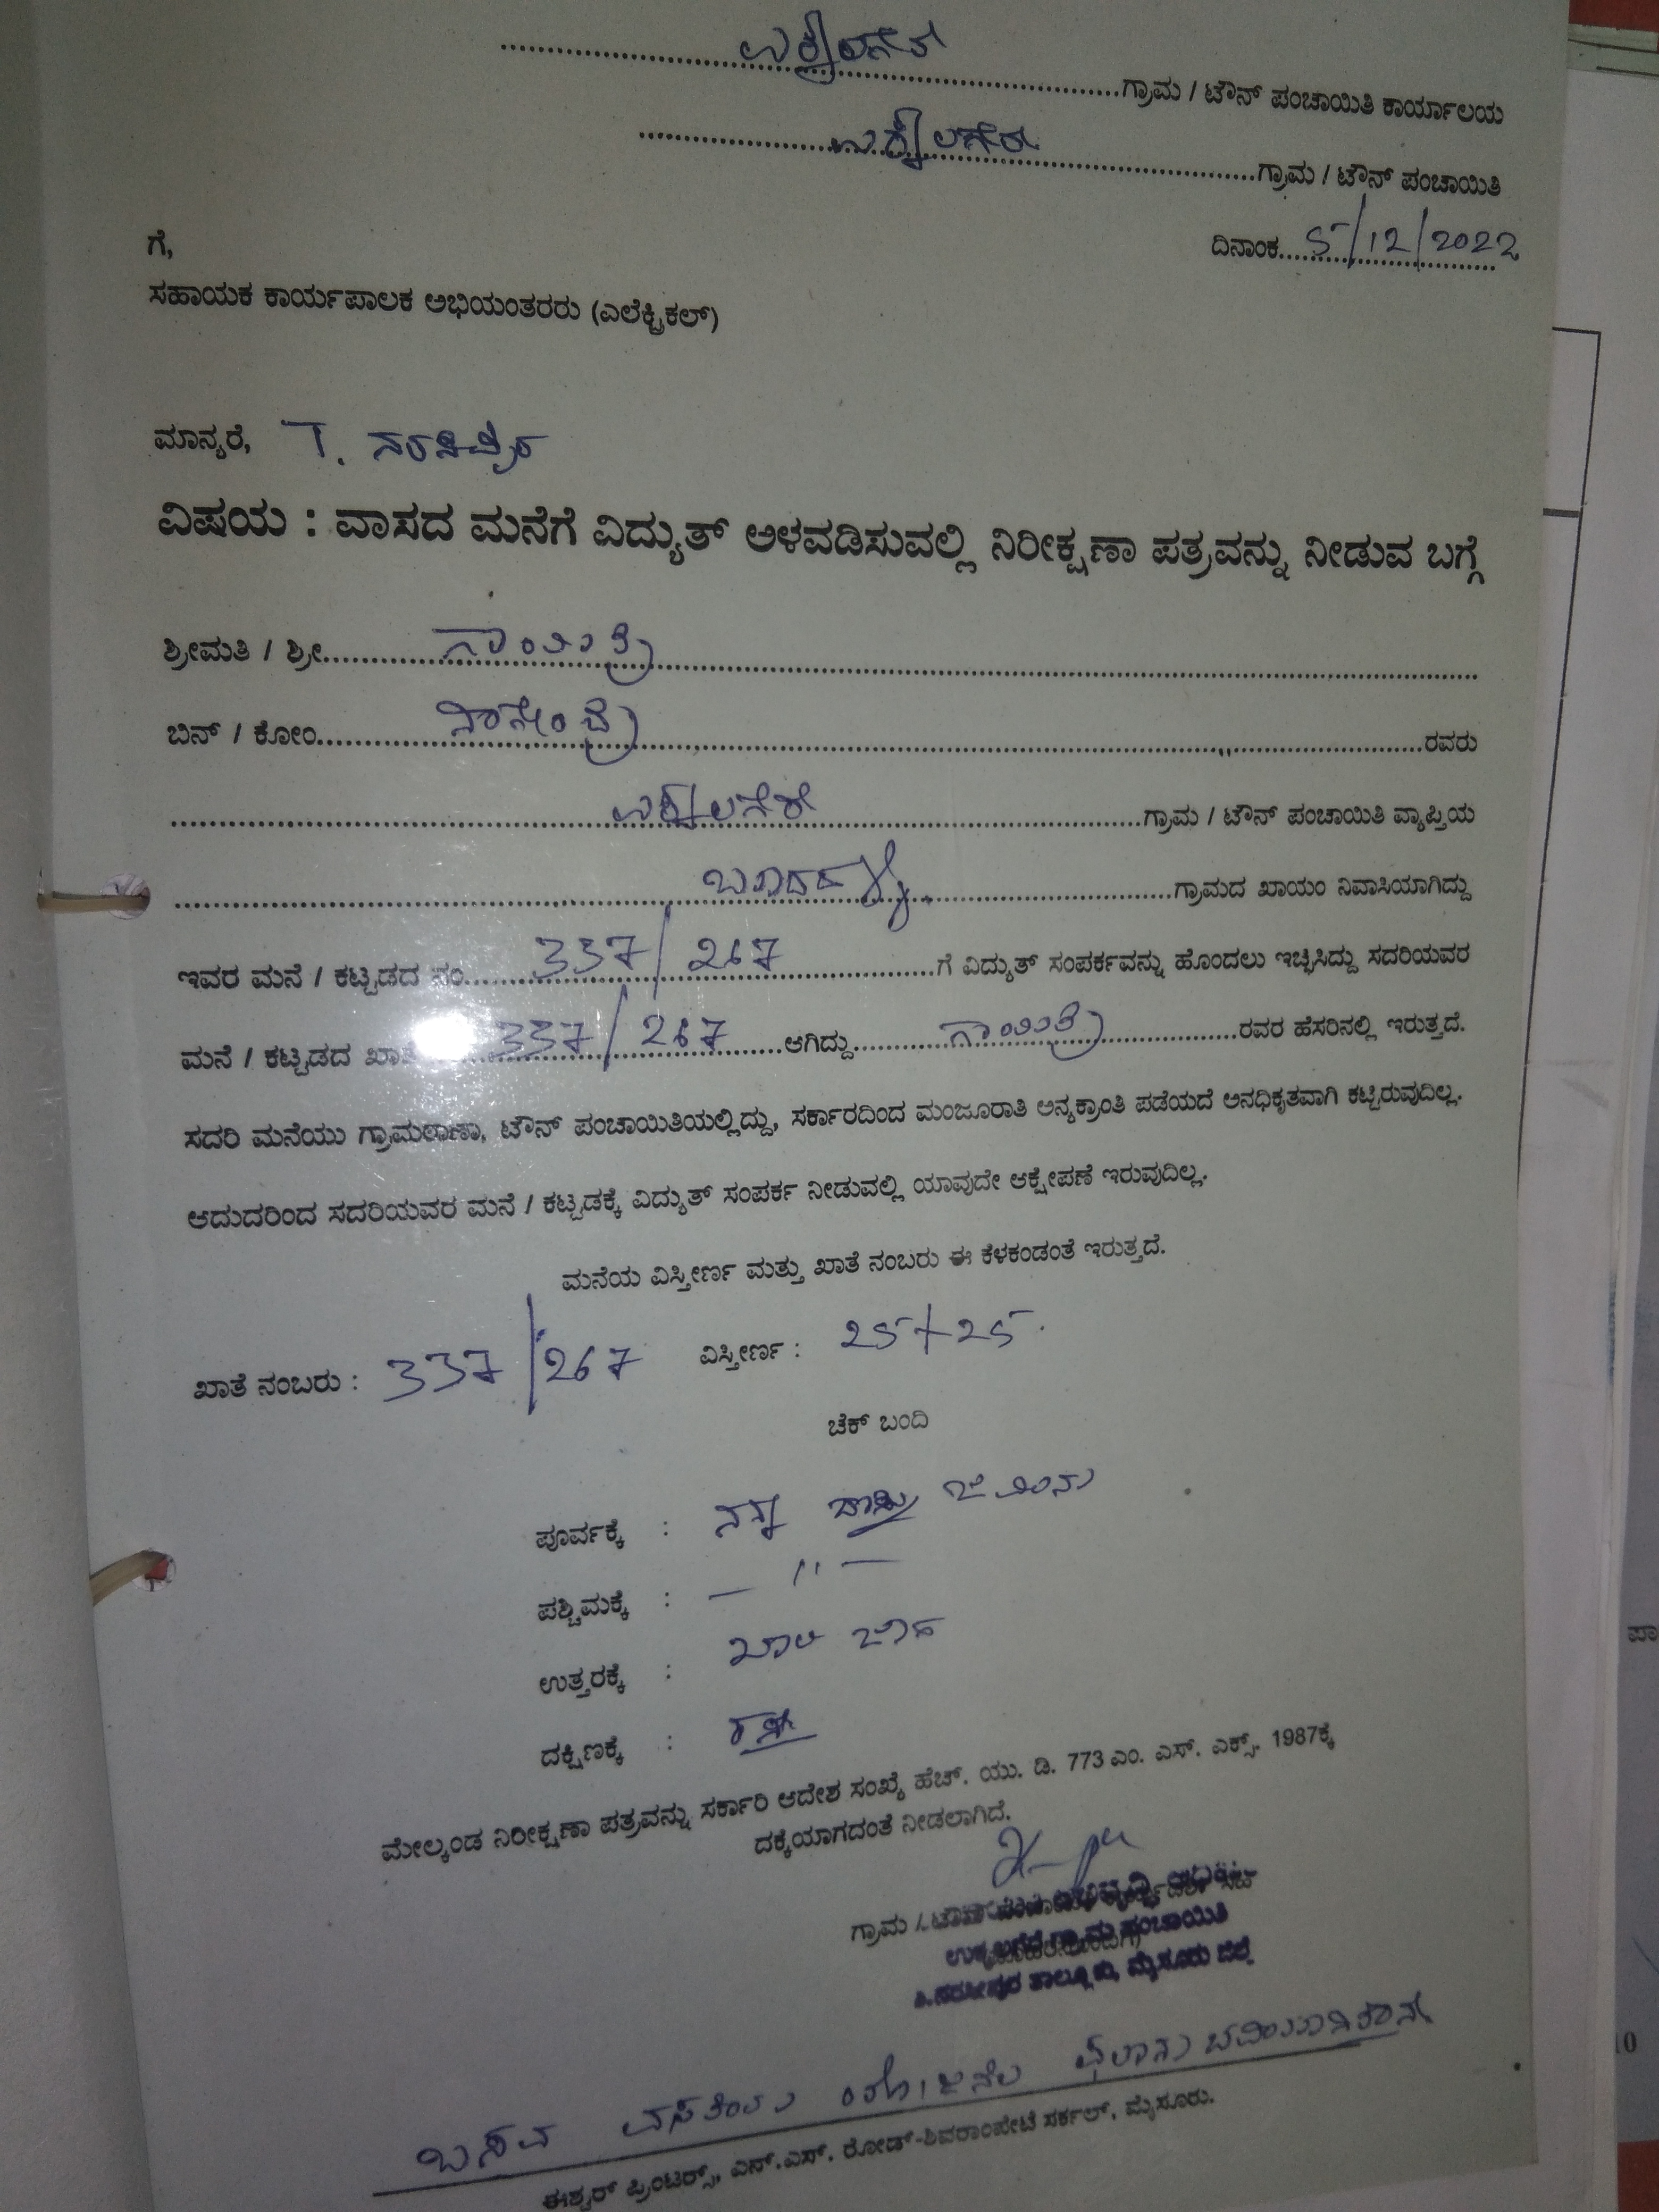 ಉಕ್ಕಲಗೆರೆ ಗ್ರಾಮ / ಟೌನ್ ಪಂಚಾಯಿತಿ ಕಾರ್ಯಾಲಯ
ಉಕ್ಕಲಗೆರೆ ಗ್ರಾಮ / ಟೌನ್ ಪಂಚಾಯಿತಿ
ದಿನಾಂಕ 5/12/2022
ಗೆ,
ಸಹಾಯಕ ಕಾರ್ಯಪಾಲಕ ಅಭಿಯಂತರರು (ಎಲೆಕ್ಟ್ರಿಕಲ್)
ಮಾನ್ಯರೆ, T. ನರಸೀಪುರ
ವಿಷಯ : ವಾಸದ ಮನೆಗೆ ವಿದ್ಯುತ್ ಅಳವಡಿಸುವಲ್ಲಿ ನಿರೀಕ್ಷಣಾ ಪತ್ರವನ್ನು ನೀಡುವ ಬಗ್ಗೆ
ಶ್ರೀಮತಿ / ಶ್ರೀ ಗಾಯಿತ್ರಿ
ಬಿನ್ / ಕೋಂ ನಾಗೇಂದ್ರ ರವರು
ಉಕ್ಕಲಗೆರೆ ಗ್ರಾಮ / ಟೌನ್ ಪಂಚಾಯಿತಿ ವ್ಯಾಪ್ತಿಯ
ಗ್ರಾಮದ ಖಾಯಂ ನಿವಾಸಿಯಾಗಿದ್ದು
ಇವರ ಮನೆ / ಕಟ್ಟಡದ ನಂ. 337/267 ಗೆ ವಿದ್ಯುತ್ ಸಂಪರ್ಕವನ್ನು ಹೊಂದಲು ಇಚ್ಛಿಸಿದ್ದು ಸದರಿಯವರ
ಮನೆ / ಕಟ್ಟಡದ ಖಾತೆ 337/267 ಆಗಿದ್ದು ಗಾಯಿತ್ರಿ ರವರ ಹೆಸರಿನಲ್ಲಿ ಇರುತ್ತದೆ.
ಸದರಿ ಮನೆಯು ಗ್ರಾಮಠಾಣಾ, ಟೌನ್ ಪಂಚಾಯಿತಿಯಲ್ಲಿದ್ದು, ಸರ್ಕಾರದಿಂದ ಮಂಜೂರಾತಿ ಅನ್ಯಕ್ರಾಂತಿ ಪಡೆಯದೆ ಅನಧಿಕೃತವಾಗಿ ಕಟ್ಟಿರುವುದಿಲ್ಲ.
ಆದುದರಿಂದ ಸದರಿಯವರ ಮನೆ / ಕಟ್ಟಡಕ್ಕೆ ವಿದ್ಯುತ್ ಸಂಪರ್ಕ ನೀಡುವಲ್ಲಿ ಯಾವುದೇ ಆಕ್ಷೇಪಣೆ ಇರುವುದಿಲ್ಲ.
ಮನೆಯ ವಿಸ್ತೀರ್ಣ ಮತ್ತು ಖಾತೆ ನಂಬರು ಈ ಕೆಳಕಂಡಂತೆ ಇರುತ್ತದೆ.
ಖಾತೆ ನಂಬರು : 337/267 ವಿಸ್ತೀರ್ಣ : 25+25
ಚೆಕ್ ಬಂದಿ
ಪೂರ್ವಕ್ಕೆ : ನನ್ನ ಜಮೀನು
ಪಶ್ಚಿಮಕ್ಕೆ : — " —
ಉತ್ತರಕ್ಕೆ : ಖಾಲಿ ಜಾಗ
ದಕ್ಷಿಣಕ್ಕೆ : ರಸ್ತೆ
ಮೇಲ್ಕಂಡ ನಿರೀಕ್ಷಣಾ ಪತ್ರವನ್ನು ಸರ್ಕಾರಿ ಆದೇಶ ಸಂಖ್ಯೆ ಹೆಚ್. ಯು. ಡಿ. 773 ಎಂ. ಎಸ್. ಎಕ್ಸ್. 1987ಕ್ಕೆ
ದಕ್ಕೆಯಾಗದಂತೆ ನೀಡಲಾಗಿದೆ.
ಗ್ರಾಮ / ಟೌನ್
ಉಕ್ಕಲಗೆರೆ ಗ್ರಾಮ ಪಂಚಾಯಿತಿ
ತಿ.ನರಸೀಪುರ ತಾಲ್ಲೂಕು, ಮೈಸೂರು ಜಿಲ್ಲೆ
ಬಸವ ವಸತಿಯ ಯೋಜನೆಯ
ಈಶ್ವರ್ ಪ್ರಿಂಟರ್ಸ್, ಎನ್.ಎಸ್. ರೋಡ್-ಶಿವರಾಂಪೇಟೆ ಸರ್ಕಲ್, ಮೈಸೂರು.